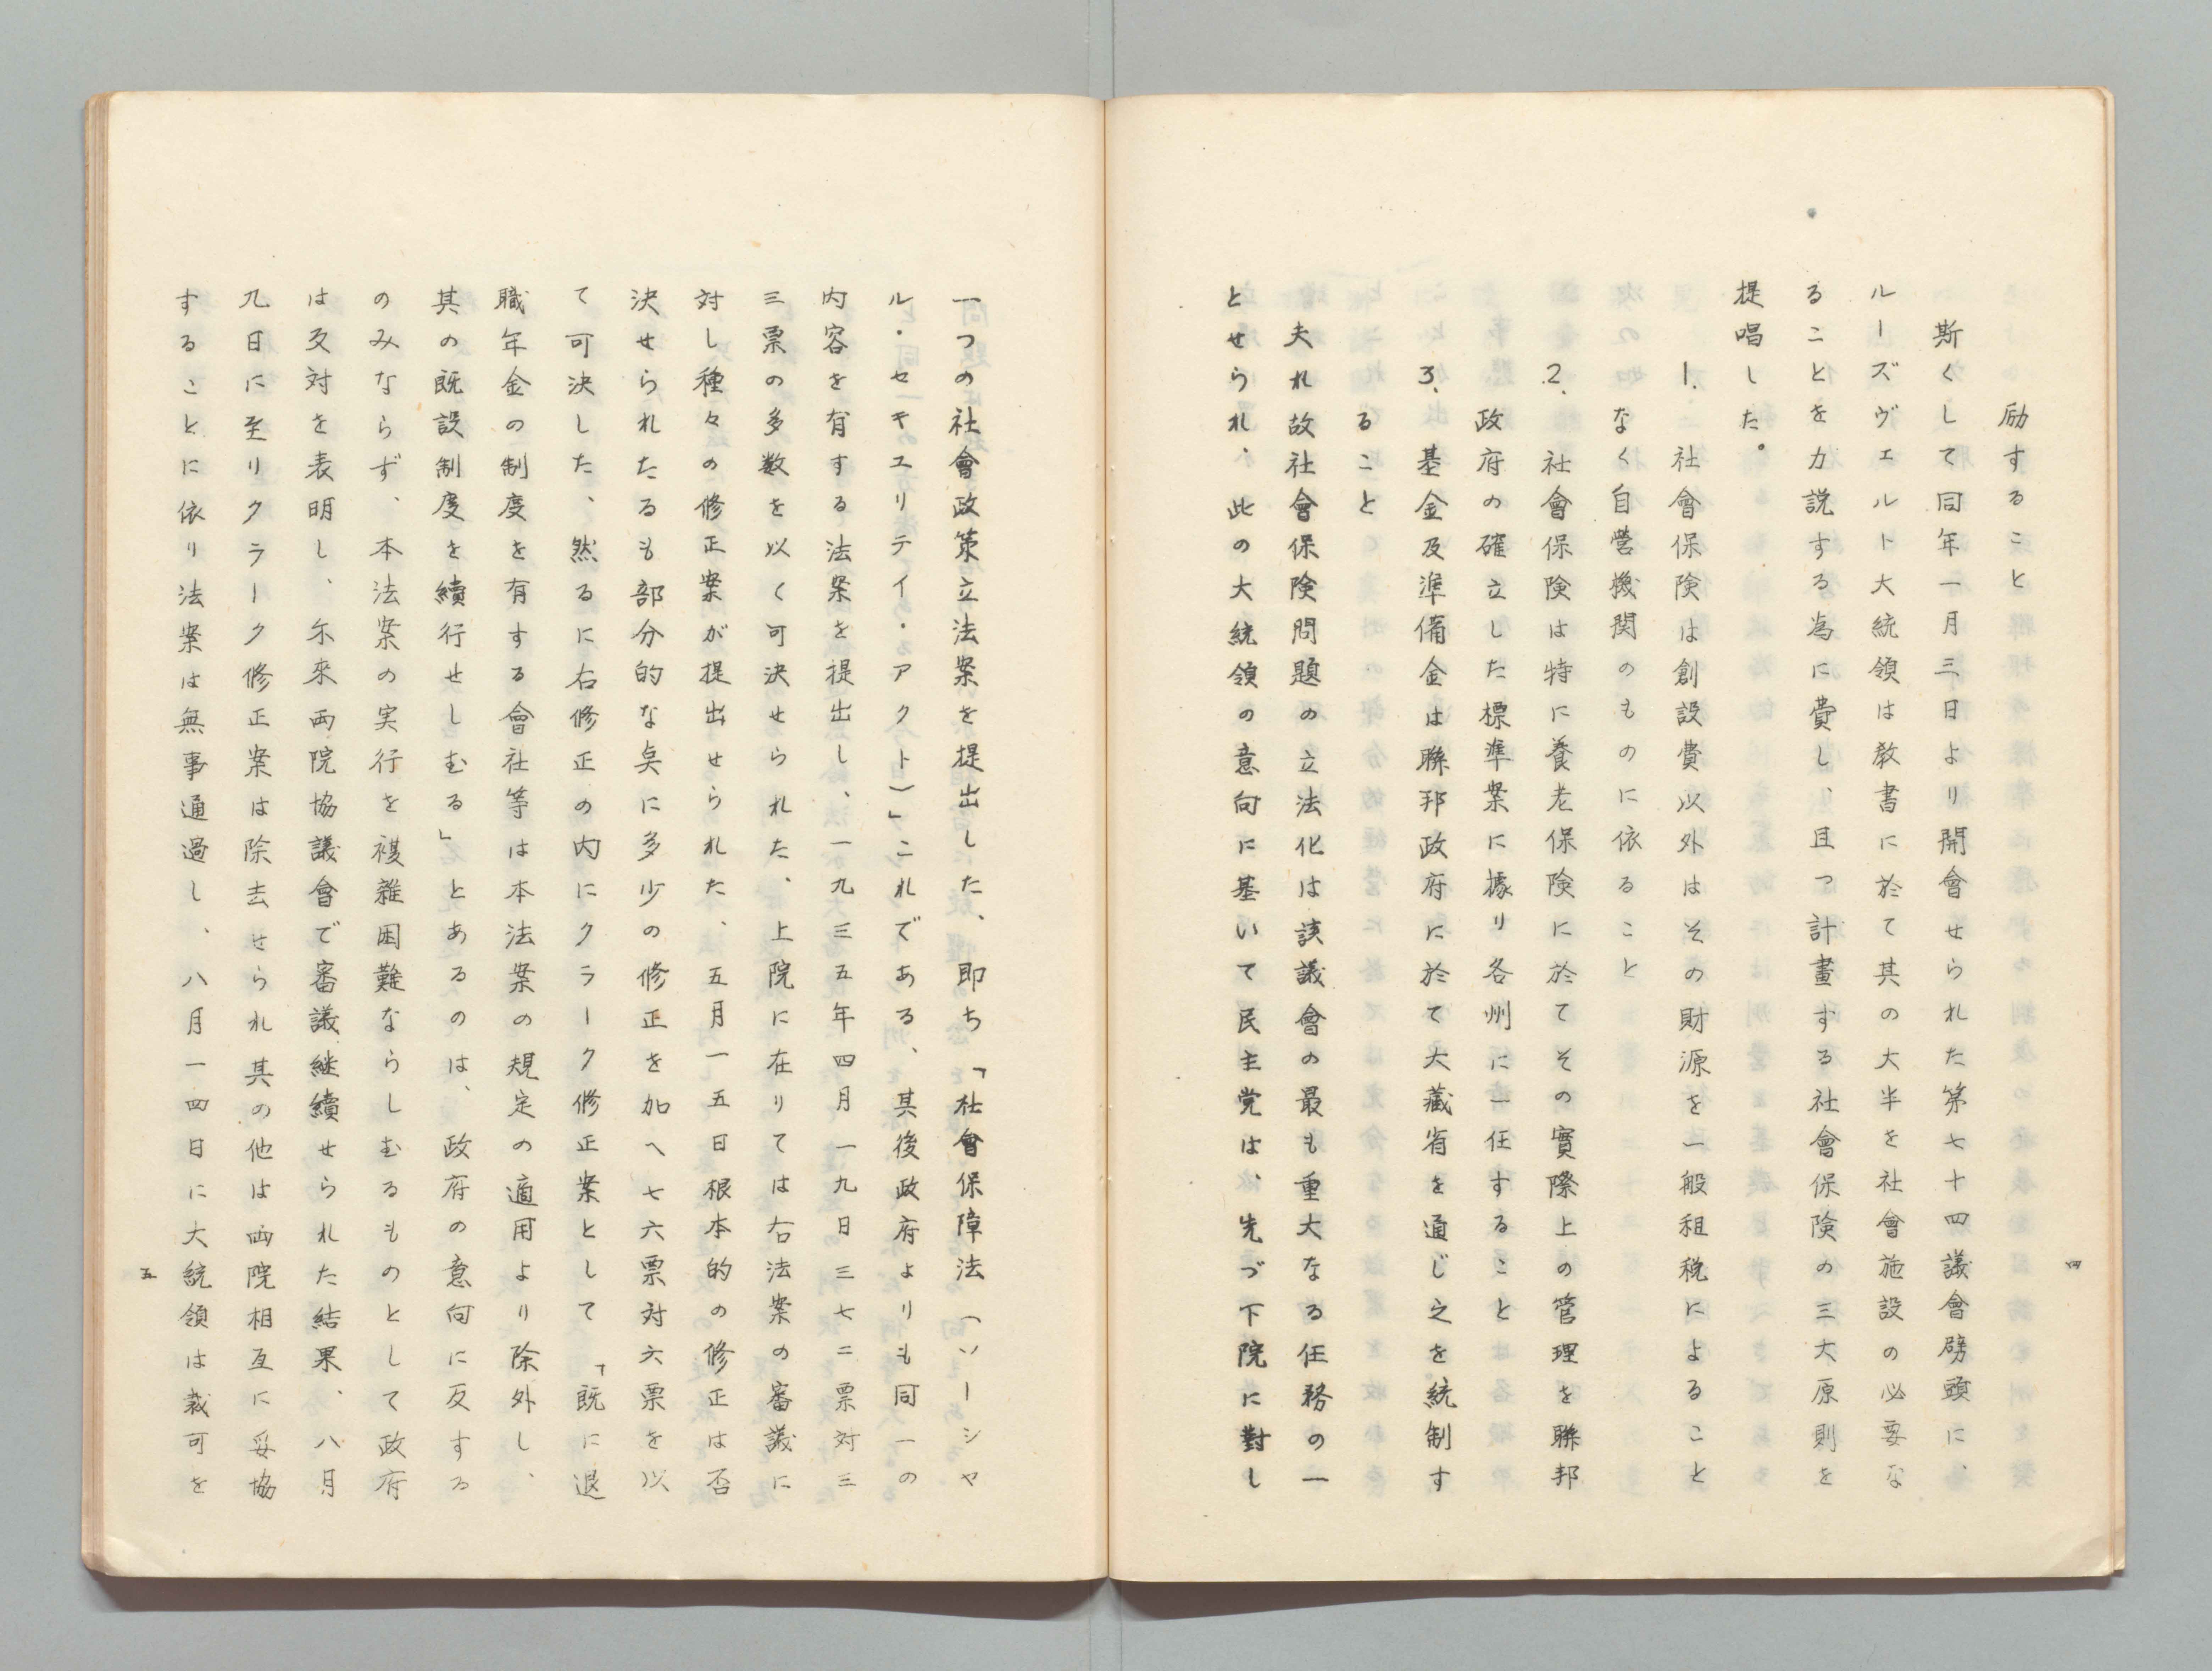 励すること
斯くして同年一月三日より開會せられた第七十四議會劈頭に、
ルーズヴェルト大統領は教書に於て其の大半を社會施設の必要な
ることを力説する為に費し、且つ計畫する社會保険の三大原則を
提唱した。
1. 社會保険は創設費以外はその財源を一般租税によること
なく自營機関のものに依ること
2. 社會保険は特に養老保険に於てその實際上の管理を聯邦
政府の確立した標準案に據り各州に一任すること
3. 基金及準備金は聯邦政府に於て大藏省を通じ之を統制す
ること
夫れ故社會保険問題の立法化は該議會の最も重大なる任務の一
とせられ、此の大統領の意向に基いて民主党は、先づ下院に對し
四
一つの社會政策立法案を提出した、即ち「社會保障法（ソーシヤ
ル・セキユリテイ・アクト）」これである、其後政府よりも同一の
内容を有する法案を提出し、一九三五年四月一九日三七二票対三
三票の多数を以く可決せられた、上院に在りては右法案の審議に
対し種々の修正案が提出せられた、五月一五日根本的の修正は否
決せられたるも部分的な点に多少の修正を加へ七六票対六票を以
て可決した、然るに右修正の内にクラーク修正案として「既に退
職年金の制度を有する會社等は本法案の規定の適用より除外し、
其の既設制度を續行せしむる」とあるのは、政府の意向に反する
のみならず、本法案の実行を複雑困難ならしむるものとして政府
は反対を表明し、尓來両院協議會で審議継續せられた結果、八月
九日に至りクラーク修正案は除去せられ其の他は両院相互に妥協
することに依り法案は無事通過し、八月一四日に大統領は裁可を
五